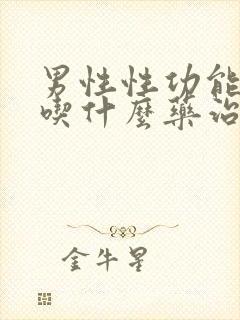 男性性功能
喫什麼藥治
金牛星